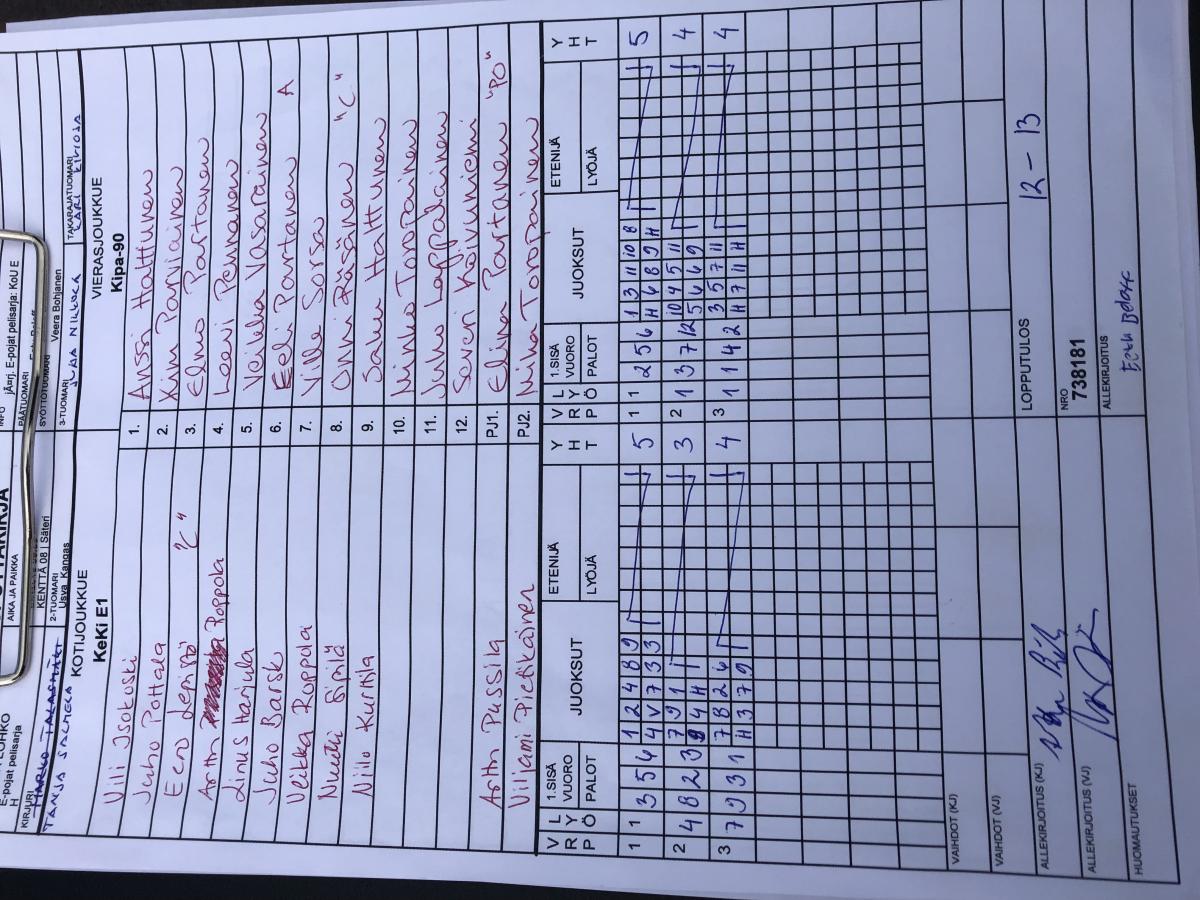 E-pojat pelisarja
H
AIKA JA PAIKKA
INFO
jÄ¤rj. E-pojat pelisarja: Kou E
KIRJURI
KENTTÄ 08 | Säteri
PÄÄTUOMARI
2-TUOMARI
SYÖTTÖTUOMARI
Veera Bohjanen
TANJA SALMELA
Usva Kangas
3-TUOMARI
TAKARAJATUOMARI
KOTIJOUKKUE
VIERASJOUKKUE
KeKi E1
Kipa-90
Vili Isokoski
1. Anssi Halttunen
Juho Pottala
2. Kim Parviainen
Eero Lepistö "C"
3. Elmo Partanen
Artth Roppola
4. Leevi Pennanen
Linus Harjula
5. Veikka Vasarainen
Juho Barsk
6. Eeli Partanen A
Veikka Roppola
7. Ville Sorsa
Nuutti Sipilä
8. Onni Räsänen "C"
Niilo Kurtila
9. Samu Halttunen
10. Minko Toropainen
11. Juho Lappalainen
12. Saveri Koivuniemi
Artth Pussila
PJ1. Elina Partanen "PO"
Viljami Pietikäinen
PJ2. Mika Toropainen
V R P L Y Ö 1.SISÄ VUORO PALOT JUOKSUT ETENIJÄ LYÖJÄ Y H T
V R P L Y Ö 1.SISÄ VUORO PALOT JUOKSUT ETENIJÄ LYÖJÄ Y H T
1 1 3 5 4 1 2 4 8 9 5
4 V 7 3 3
1 1 2 5 6 1 3 11 10 8 5
H 6 8 9 H
2 4 8 2 3 7 9 1 3
9 4 H
2 1 3 7 12 10 4 5 11 4
5 6 6 9
3 7 9 3 1 7 8 2 4 4
H 3 7 9
3 1 1 4 2 3 5 7 11 4
H 7 11 H
VAIHDOT (KJ)
VAIHDOT (VJ)
LOPPUTULOS
12 – 13
ALLEKIRJOITUS (KJ)
NRO
738181
ALLEKIRJOITUS (VJ)
ALLEKIRJOITUS
HUOMAUTUKSET